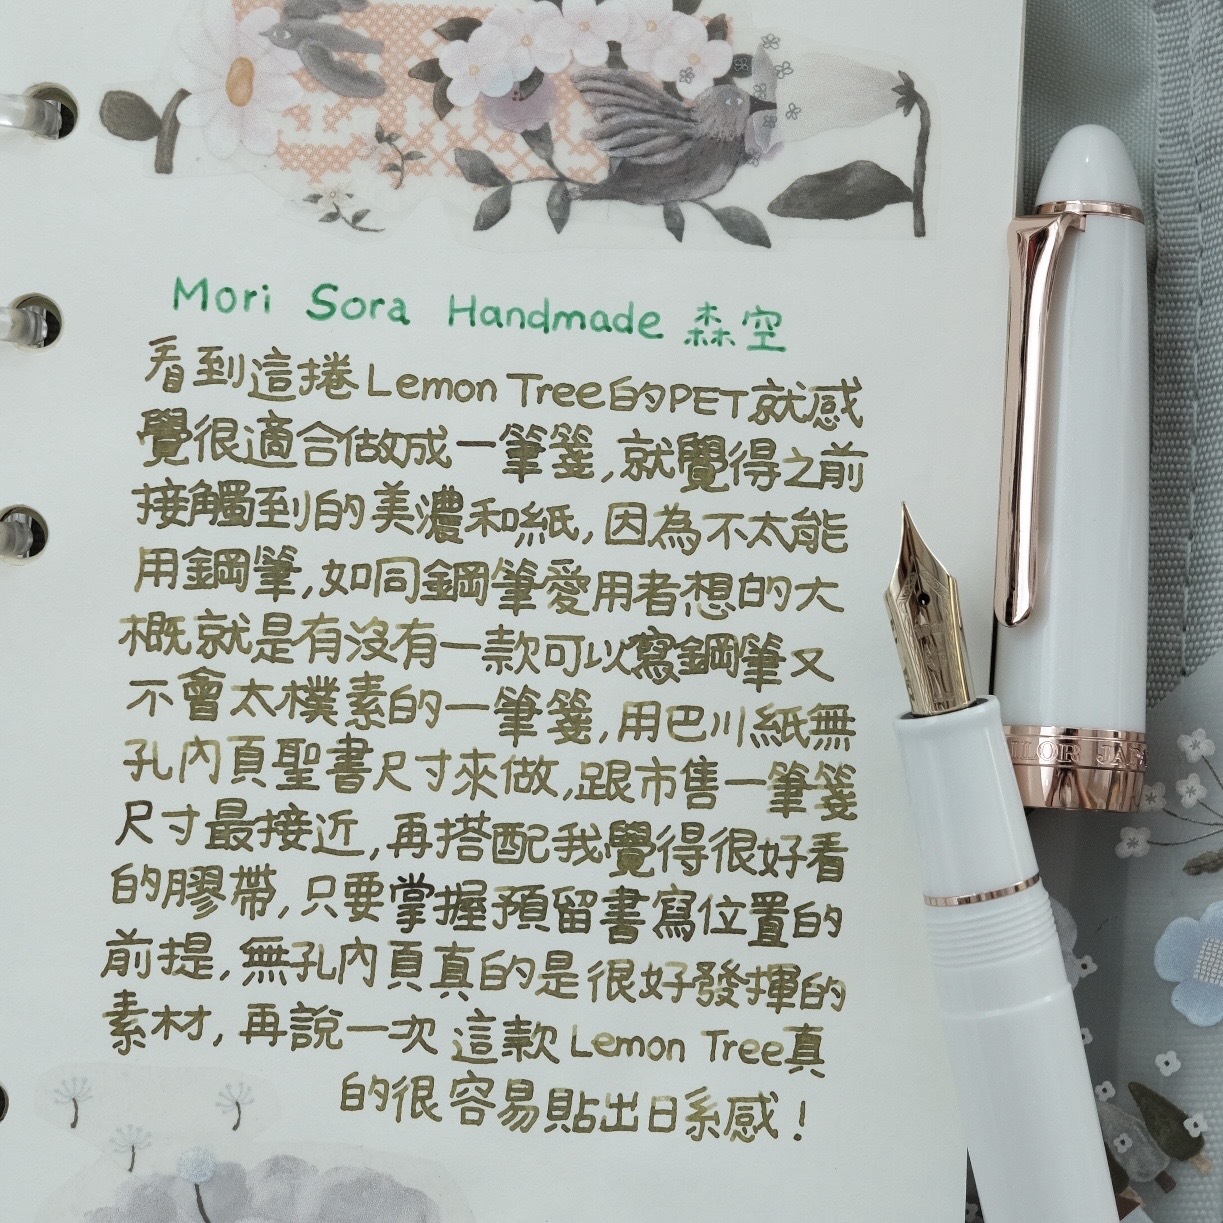 Mori Sora Handmade 森空
看到這捲Lemon Tree的PET就感
覺很適合做成一筆箋,就覺得之前
接觸到的美濃和紙,因為不太能
用鋼筆,如同鋼筆愛用者想的大
概就是有沒有一款可以寫鋼筆又
不會太樸素的一筆箋,用巴川紙無
孔內頁聖書尺寸來做,跟市售一筆箋
尺寸最接近,再搭配我覺得很好看
的膠帶,只要掌握預留書寫位置的
前提,無孔內頁真的是很好發揮的
素材,再說一次 這款Lemon Tree真
的很容易貼出日系感!